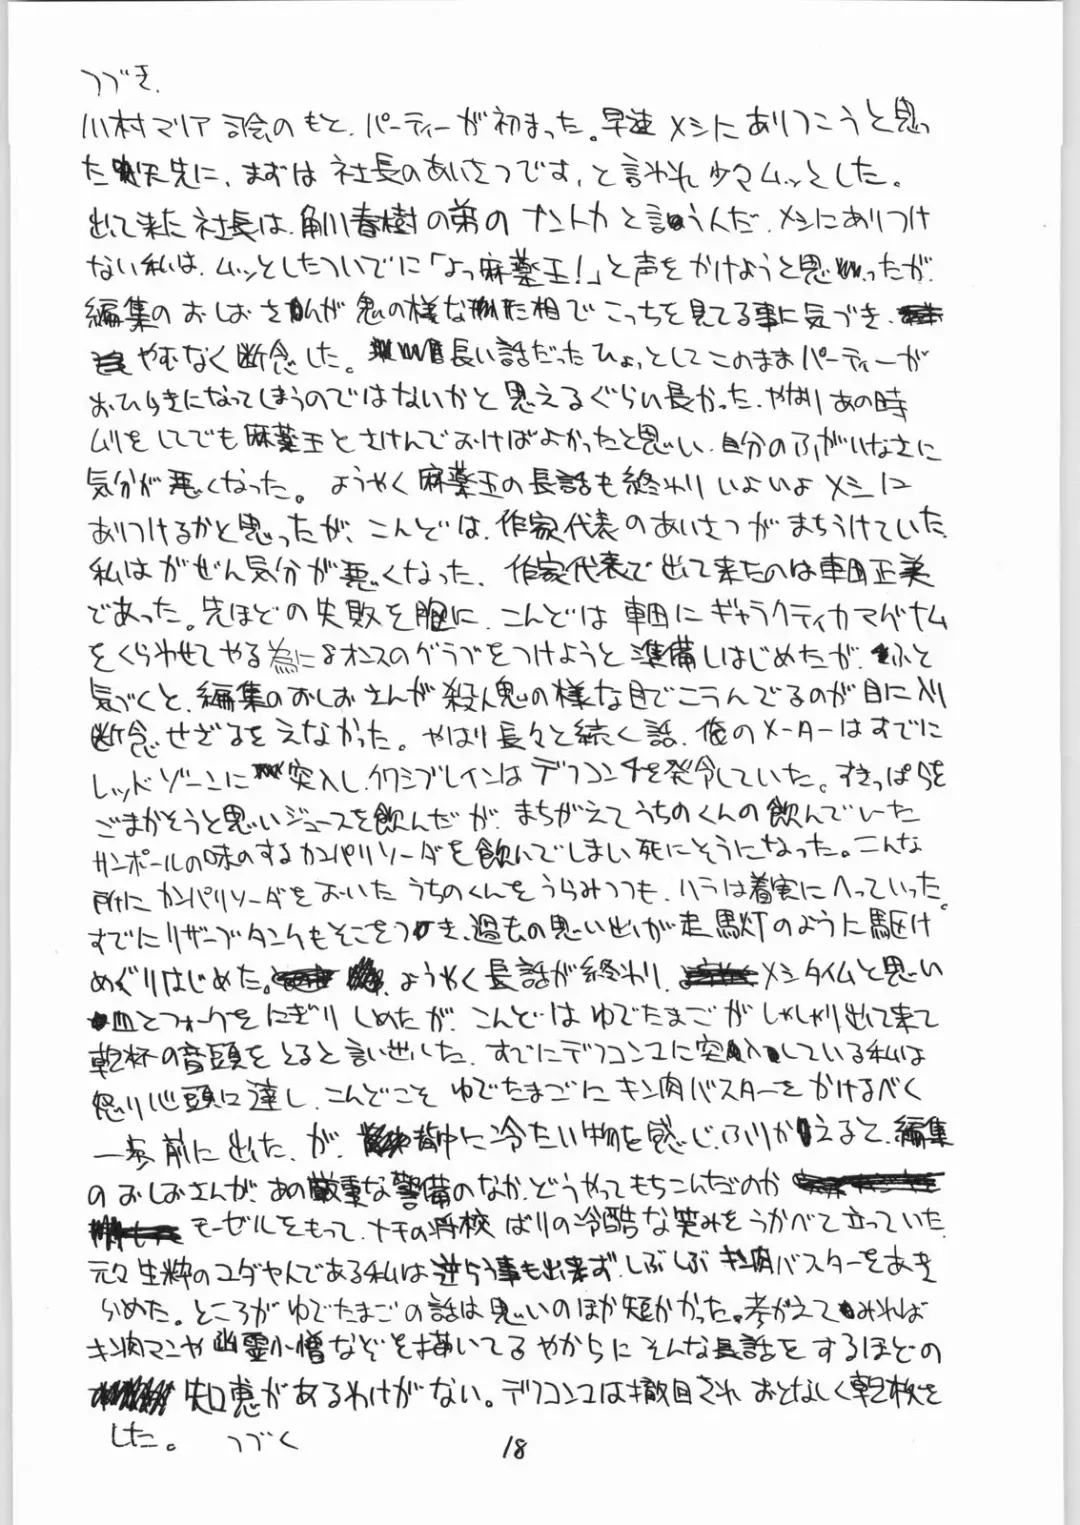 つづき.
川村マリア司会のもと、パーティーが初まった。早速メシにありつこうと思っ
た矢先に、まずは社長のあいさつです、と言われ少々ムッとした。
出て来た社長は、角川春樹の弟のナントカと言う人だ、メシにありつけ
ない私は、ムッとしたついでに「よっ麻薬王!」と声をかけようと思ったが、
編集のおしおさんが鬼の様な形相でこっちを見てる事に気づき、
やむなく断念した。長い話だったひょっとしてこのままパーティーが
おひらきになってしまうのではないかと思えるぐらい長かった、やはりあの時
ムリをしてでも麻薬王とさけんでおけばよかったと思い、自分のふがいなさに
気分が悪くなった。ようやく麻薬王の長話も終わりいよいよメシに
ありつけるかと思ったが、こんどは、作家代表のあいさつがまちうけていた
私はがぜん気分が悪くなった、作家代表で出て来たのは車田正美
であった。先ほどの失敗を胸に、こんどは車田にギャラクティカマグナム
をくらわせてやる為に8オンスのグラブをつけようと準備しはじめたが、ふと
気づくと、編集のおしおさんが殺人鬼の様な目でこうんでるのが目に入り
断念せざるをえなかった。やはり長々と続く話、俺のメーターはすでに
レッドゾーンに突入し、クワシブレインはデフコン4を発令していた。すきっぱらを
ごまかそうと思いジュースを飲んだが、まちがえてうちのくんの飲んでいた
サンポールの味のするカンパリソーダを飲んでしまい死にそうになった。こんな
所にカンパリソーダをおいたうちのくんをうらみつつも、ハラは着実にへっていった。
すでにリザーブタンクもそこをつき、過去の思い出が走馬灯のように駆け
めぐりはじめた。ようやく長話が終わり、メシタイムと思い
皿とフォークをにぎりしめたが、こんどはゆでたまごがしゃしゃり出て来て
乾杯の音頭をとると言い出した、すでにデフコン2に突入している私は
怒り心頭に達し、こんどこそゆでたまごにキン肉バスターをかけるべく
一歩前に出た、が、背中に冷たい物を感じ、ふりかえると、編集
のおしおさんが、あの厳重な警備のなか、どうやってもちこんだのか
モーゼルをもって、ナチの将校ばりの冷酷な笑みをうかべて立っていた
元々生粋のユダヤ人である私は逆らう事も出来ず、しぶしぶキン肉バスターをあき
らめた。ところがゆでたまごの話は思いのほか短かかった。考がえてみれば
キン肉マンや幽霊小僧などを描いてるやからにそんな長話をするほどの
知恵があるわけがない。デフコン2は撤回されおとなしく乾杯を
した。 つづく
18